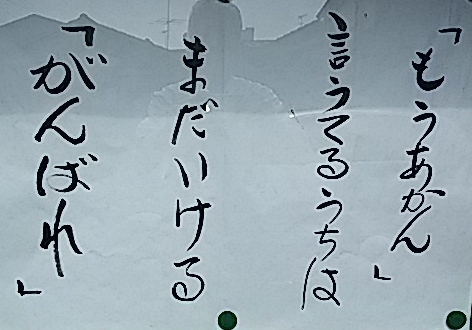 「もうあかん」
言うてるうちは
まだいける
「がんばれ」